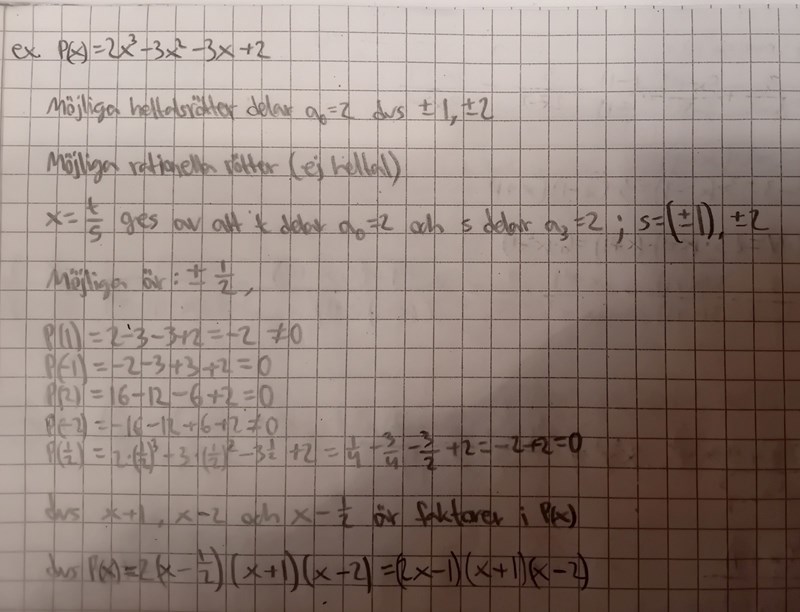 ex P(x)=2x³-3x²-3x+2
Möjliga heltalsrötter delar a₀=2 dvs ±1, ±2
Möjliga rationella rötter (ej heltal)
x=t/s ges av att t delar a₀=2 och s delar a₃=2 ; s=(±1), ±2
Möjliga är: ± 1/2,
P(1)=2-3-3+2=-2 ≠0
P(-1)=-2-3+3+2=0
P(2)=16-12-6+2=0
P(-2)=-16-12+6+2≠0
P(1/2)=2·(1/2)³-3·(1/2)²-3 1/2 +2 = 1/4 - 3/4 - 3/2 +2=-2+2=0
dvs x+1, x-2 och x-1/2 är faktorer i P(x)
dvs P(x)=2(x-1/2)(x+1)(x-2)=(2x-1)(x+1)(x-2)